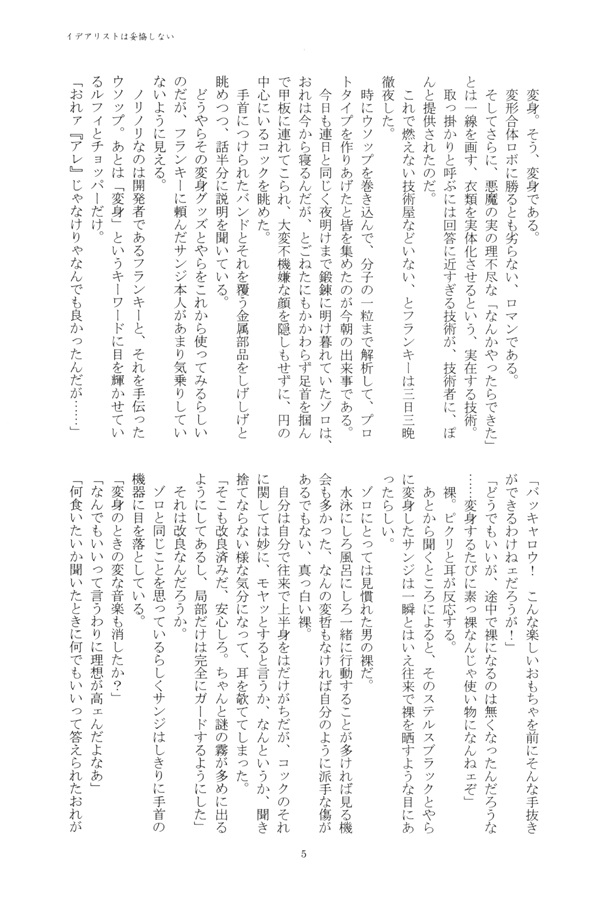 イデアリストは妥協しない
変身。そう、変身である。
変形合体ロボに勝るとも劣らない、ロマンである。
そしてさらに、悪魔の実の理不尽な「なんかやったらできた」
とは一線を画す、衣類を実体化させるという、実在する技術。
取っ掛かりと呼ぶには回答に近すぎる技術が、技術者に、ぽ
んと提供されたのだ。
これで燃えない技術屋などいない、とフランキーは三日三晩
徹夜した。
時にウソップを巻き込んで、分子の一粒まで解析して、プロ
トタイプを作りあげたと皆を集めたのが今朝の出来事である。
今日も連日と同じく夜明けまで鍛錬に明け暮れていたゾロは、
おれは今から寝るんだが、とごねたにもかかわらず足首を掴ん
で甲板に連れてこられ、大変不機嫌な顔を隠しもせずに、円の
中心にいるコックを眺めた。
手首につけられたバンドとそれを覆う金属部品をしげしげと
眺めつつ、話半分に説明を聞いている。
どうやらその変身グッズとやらをこれから使ってみるらしい
のだが、フランキーに頼んだサンジ本人があまり気乗りしてい
ないように見える。
ノリノリなのは開発者であるフランキーと、それを手伝った
ウソップ。あとは「変身」というキーワードに目を輝かせてい
るルフィとチョッパーだけ。
「おれァ『アレ』じゃなけりゃなんでも良かったんだが……」
「バッキャロウ！　こんな楽しいおもちゃを前にそんな手抜き
ができるわけねェだろうが！」
「どうでもいいが、途中で裸になるのは無くなったんだろうな
……変身するたびに素っ裸なんじゃ使い物になんねェぞ」
裸。ピクリと耳が反応する。
あとから聞くところによると、そのステルスブラックとやら
に変身したサンジは一瞬とはいえ往来で裸を晒すような目にあ
ったらしい。
ゾロにとっては見慣れた男の裸だ。
水泳にしろ風呂にしろ一緒に行動することが多ければ見る機
会も多かった、なんの変哲もなければ自分のように派手な傷が
あるでもない、真っ白い裸。
自分は自分で往来で上半身をはだけがちだが、コックのそれ
に関しては妙に、モヤッとすると言うか、なんというか、聞き
捨てならない様な気分になって、耳を欹ててしまった。
「そこも改良済みだ、安心しろ。ちゃんと謎の霧が多めに出る
ようにしてあるし、局部だけは完全にガードするようにした」
それは改良なんだろうか。
ゾロと同じことを思っているらしくサンジはしきりに手首の
機器に目を落としている。
「変身のときの変な音楽も消したか？」
「なんでもいいって言うわりに理想が高ェんだよなあ」
「何食いたいか聞いたときに何でもいいって答えられたおれが
5